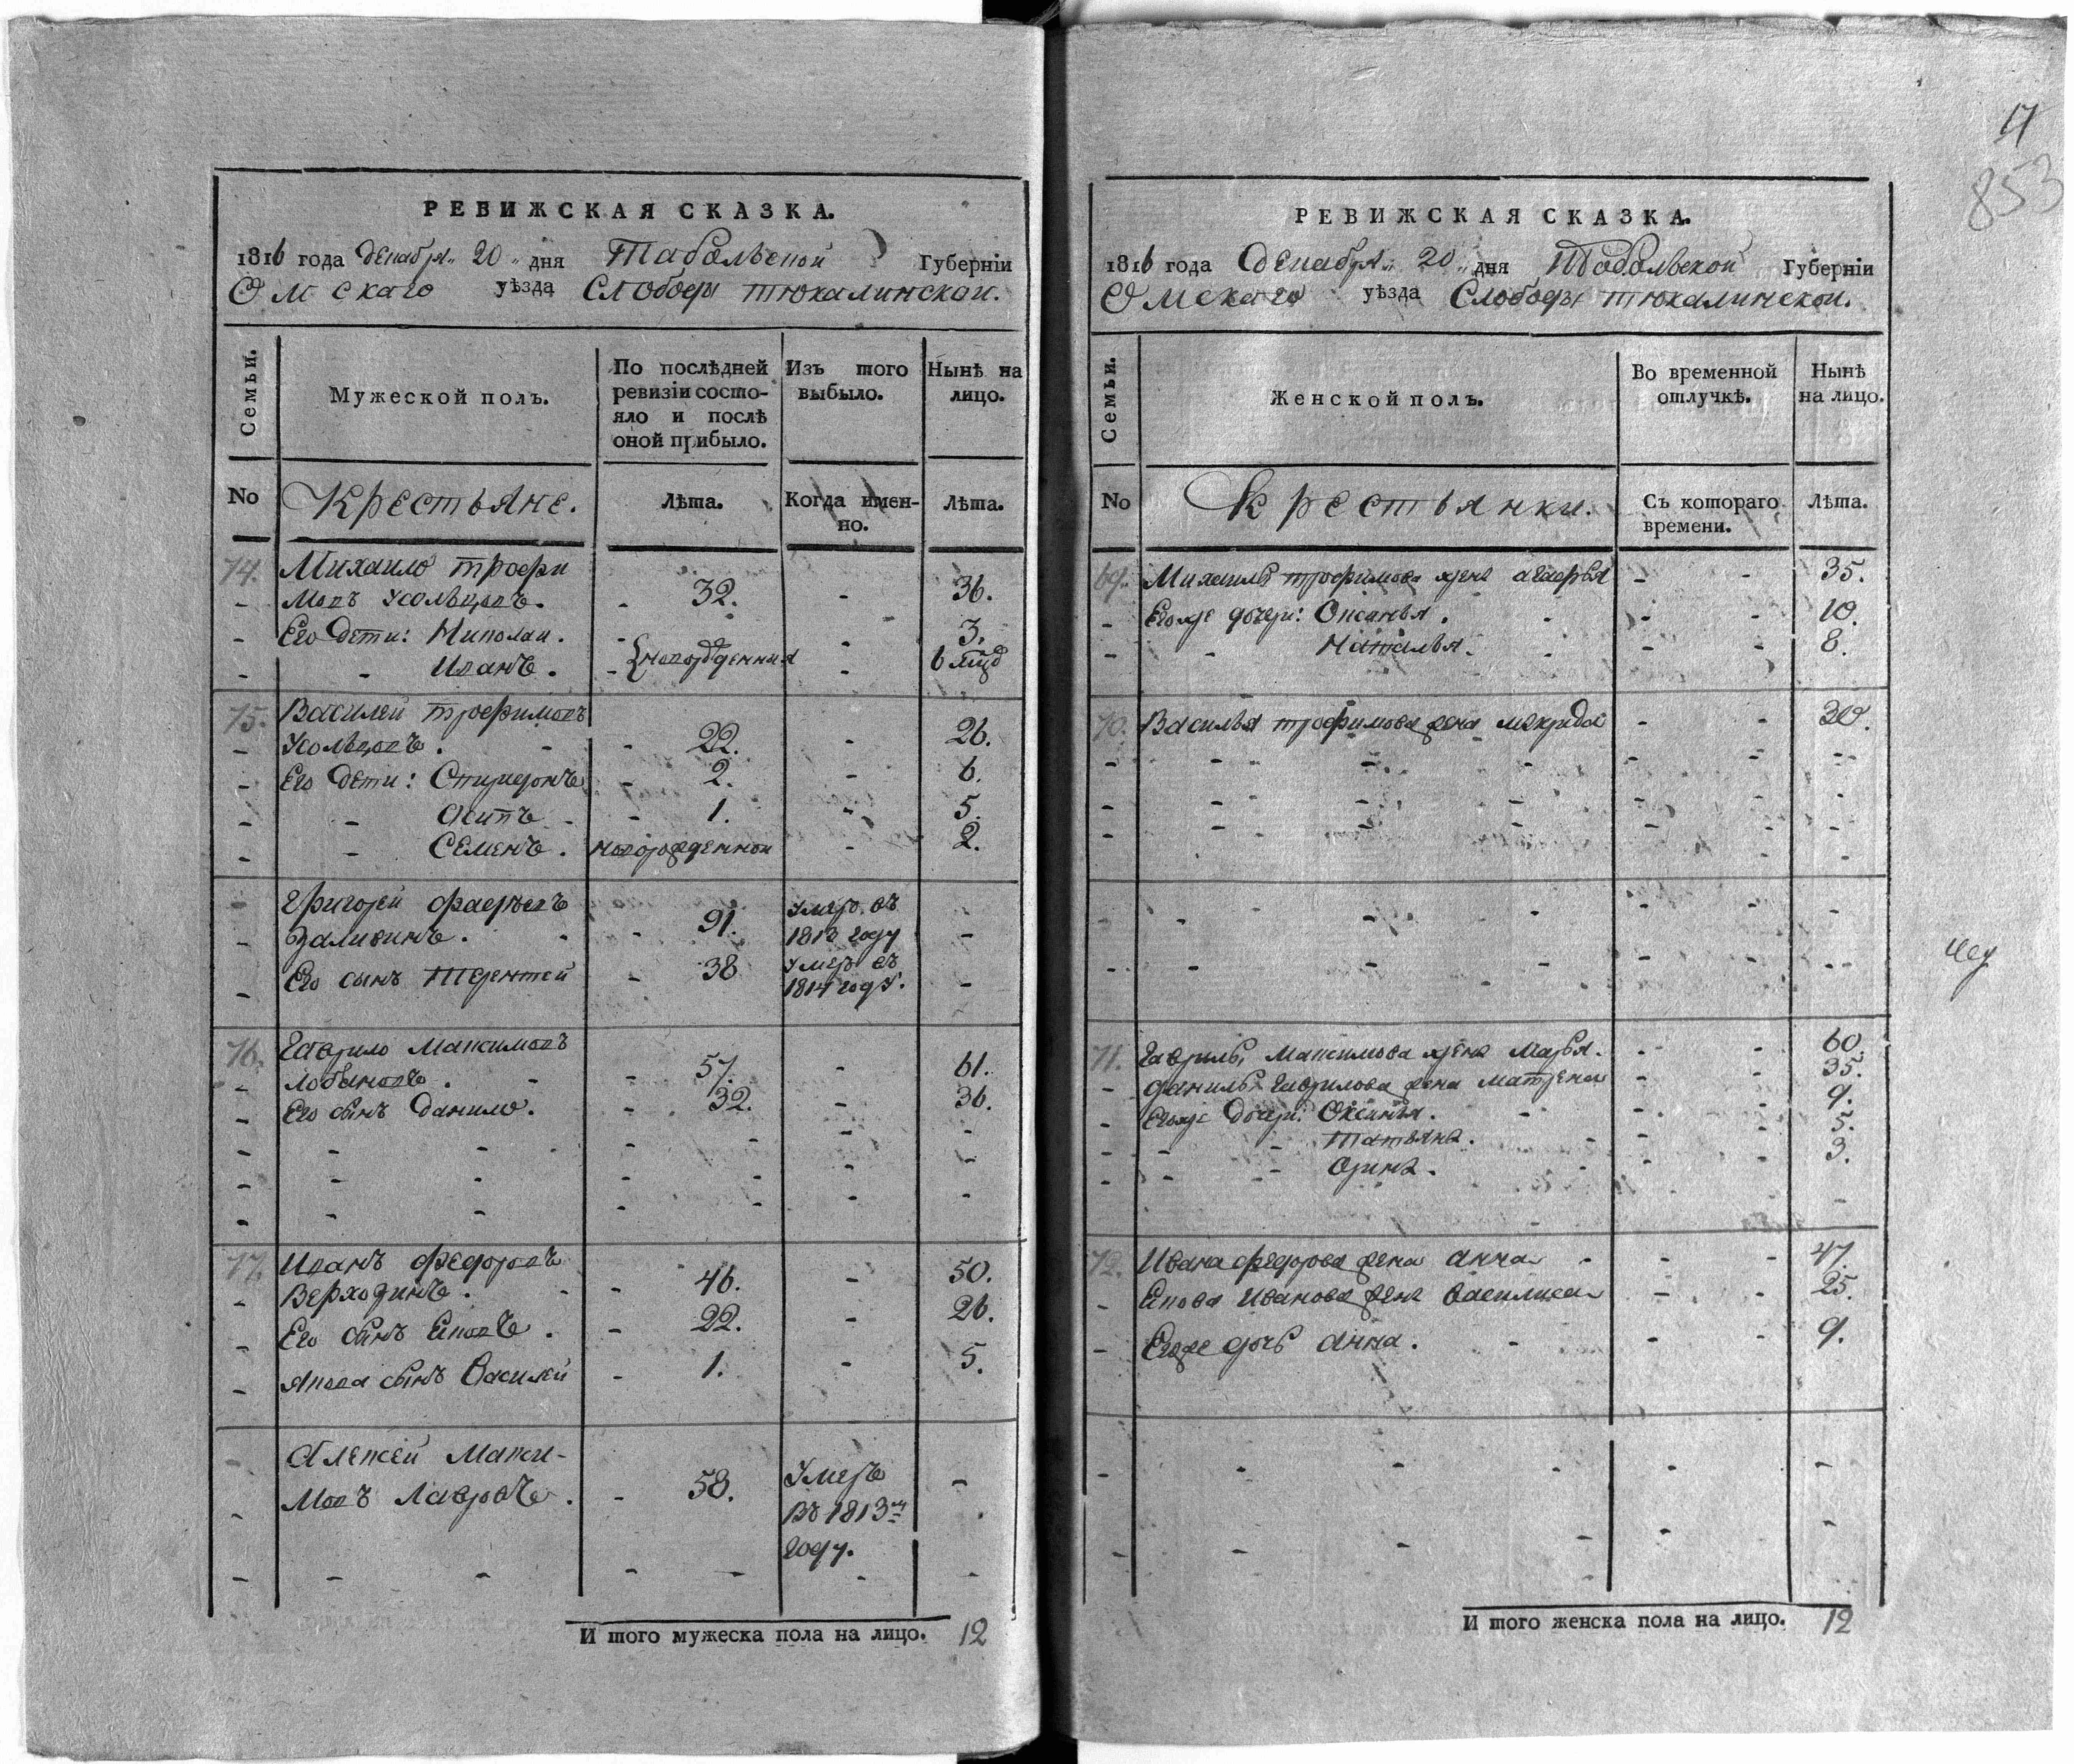 РЕВИЖСКАЯ СКАЗКА.
1816 года декабря 20 дня Табольской Губерніи
Омскаго уѣзда Слободы тюкалинской.
Семьи.
Мужеской полъ.
По послѣдней ревизіи состояло и послѣ оной прибыло.
Изъ того выбыло.
Нынѣ на лицо.
No Крестьяне. Лѣта. Когда именно. Лѣта.
74. Михаило трофи
мовъ Усольцовъ. - 32. - 36.
Его дети: Николаи. - - 3.
- Иванъ. - новорожденныя - 6 
75. Василей трофимовъ
Усольцовъ. - 22. - 26.
Его дети: Спиридонъ - 2. - 6.
- Осипъ - 1. - 5.
- Семенъ. новорожденной - 2.
Григорей 
Заливинъ. - 91. Умеръ въ 1813 году -
Его сынъ Терентей - 38 Умеръ въ 1814 году. -
76. Гаврило Максимовъ
Лобановъ. - 57. - 61.
Его сынъ Данило. - 32. - 36.
77. Иванъ Федоровъ
Верходинъ. - 46. - 50.
Его сынъ Яковъ. - 22. - 26.
Якова сынъ Василей - 1. - 5.
Алексей Макси-
мовъ Лавровъ. - 58. Умеръ
въ 1813м
году.
И того мужеска пола на лицо. 12
17
853
РЕВИЖСКАЯ СКАЗКА.
1816 года декабря 20 дня Тобольской Губерніи
Омскаго уѣзда Слободы тюкалинской.
Семьи.
Женской полъ.
Во временной отлучкѣ.
Нынѣ на лицо.
No Крестьянки. Съ котораго времени. Лѣта.
69. Михаилы трофимова жена агафья - - 35.
Егоже дочери: Оксинья. - - 10.
- Наталья. - - 8.
70. Василья трофимова жена макрида - - 30.
71. Гаврилы Максимова жена Марья. - - 60
Данилы Гаврилова жена матрена - - 35.
Егоже дочери: Оксинья. - - 9.
- Татьяна. - - 5.
- Орина. - - 3.
72. Ивана федорова жена анна - - 47.
Якова Иванова жена Василиса - - 25.
Егоже дочь анна. - - 9.
И того женска пола на лицо. 12